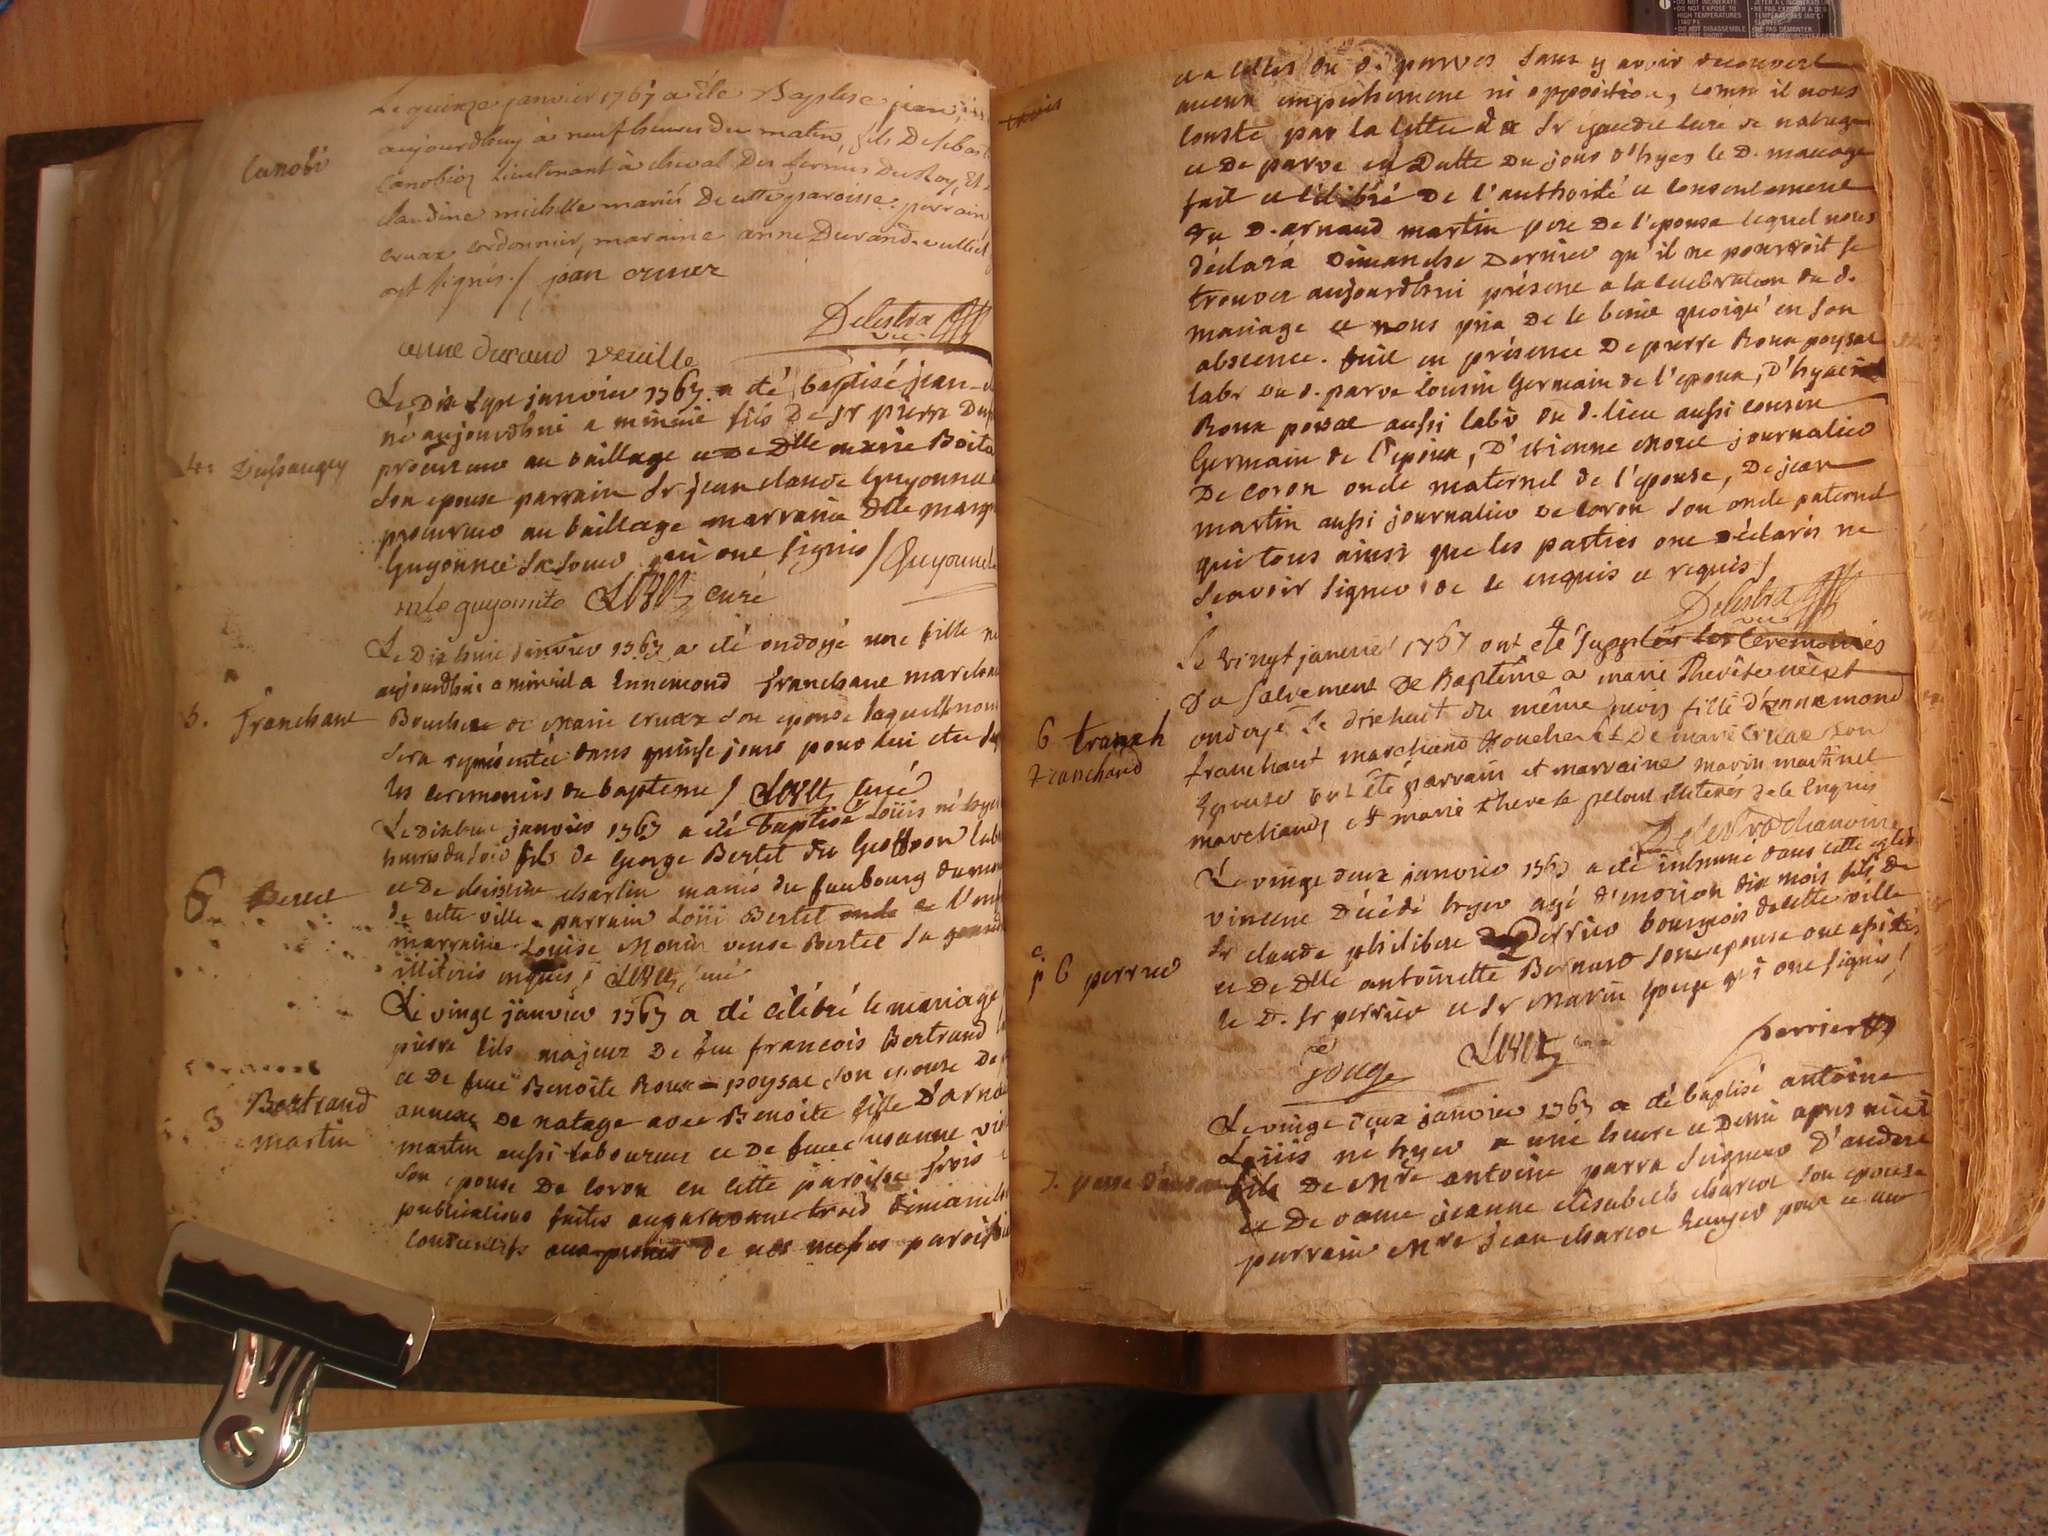 Le quinze janvier 1767 a été Baptisé jean
aujourdhuy à neuf heures du matin, fils De sebast
Canobio Lieutenant à cheval Des fermes Du Roy, Et
claudine michelle mariés De cette paroisse. parrain
cruax cordonnier, maraine anne Durand
ont signés./ jean cruaz
Canobi
Delestra
vic.
anne durand
Le Dix sept janvier 1767. a été baptisé jean
né aujourdhui a minuit fils De Sr pierre
procureur au baillage et De Dlle marie
son epouse parrain Sr jean claude Guyonnet
procureur au baillage marraine Dlle
Guyonnet sa soeur qui ont signés / Guyonnet
curé
Le Dix huit janvier 1767 a été ondoyé une fille
aujourdhui a minuit a Ennemond franchant
Boucher et Marie cruax son epouse laquelle
sera représentée dans quinse jours pour lui
les ceremonies du bapteme / curé
5. franchant
Le Dix huit janvier 1767 a été baptisé Loüis né hyer
fils de George Bertet dit
et De charlin mariés du faubourg
de cette ville. parrain Loüi Bertet
marraine Louise Monin veuve Bertet sa
illiterés enquis / curé
6. Bertet
Le vingt janvier 1767 a été célébré le mariage
pierre fils majeur De feu francois Bertrand
et De feue Benoite Roux poysat son epouse De
annexe De natage avec Benoite fille D'arnaud
martin aussi laboureur et De feue susanne
son epouse De Coron en cette paroisse trois
publications faites
de nos messes
Bertrand
martin
et a celles du d. parves sans y avoir decouvert
aucun empechement ni opposition, comme il nous
conste par la lettre du Sr curé de natage
et De parve en Datte Du jour d'hyer le D. mariage
fait et célébré De l'authorité et consentement
du D. arnaud martin pere De l'epouse lequel nous
déclara Dimanche Dernier qu'il ne pourroit se
trouver aujourdhui présent a la célébration du d.
mariage et nous pria De le benir quoiqu'en son
absence. fait en présence De pierre Roux poysat
labr du d. parve cousin Germain de l'epoux, D'hyacint
Roux poysat aussi labr du d. lieu aussi cousin
Germain de l'epoux, D'etienne journalier
De coron oncle maternel de l'epouse, De jean
martin aussi journalier de coron son oncle paternel
qui tous ainsi que les parties ont déclarés ne
scavoir signer de ce enquis et requis /
Delestra
vic.
Le vingt janvier 1767 ont été supplées les Ceremonies
Du Sacrement De Baptême a marie Therése née et
ondoyé le dixhuit du même mois fille d'ennemond
franchant marchand Boucher et De marie cruax son
Epouse ont été parrain et marraine marin martinet
marchand, et marie therese illiterés de ce Enquis
Delestra chanoine
6 franch
franchand
Le vingt deux janvier 1767 a été inhumé dans cette eglise
vincent Décédé hyer agé d'environ dix mois fils De
Sr claude philibert Perrier bourgeois de cette ville
et De Dlle antoinette Bernard son epouse ont assistés
le D. Sr perrier et Sr Marin Gouge qui ont signés /
6 perrier
Gouge
perrier
Le vingt deux janvier 1767 a été baptisé antoine
Loüis né hyer a une heure et Demi apres midi
fils De Mre antoine parra seigneur D'andert
et De Dame jeanne elisabeth charcot son epouse
parrain Mre jean charcot